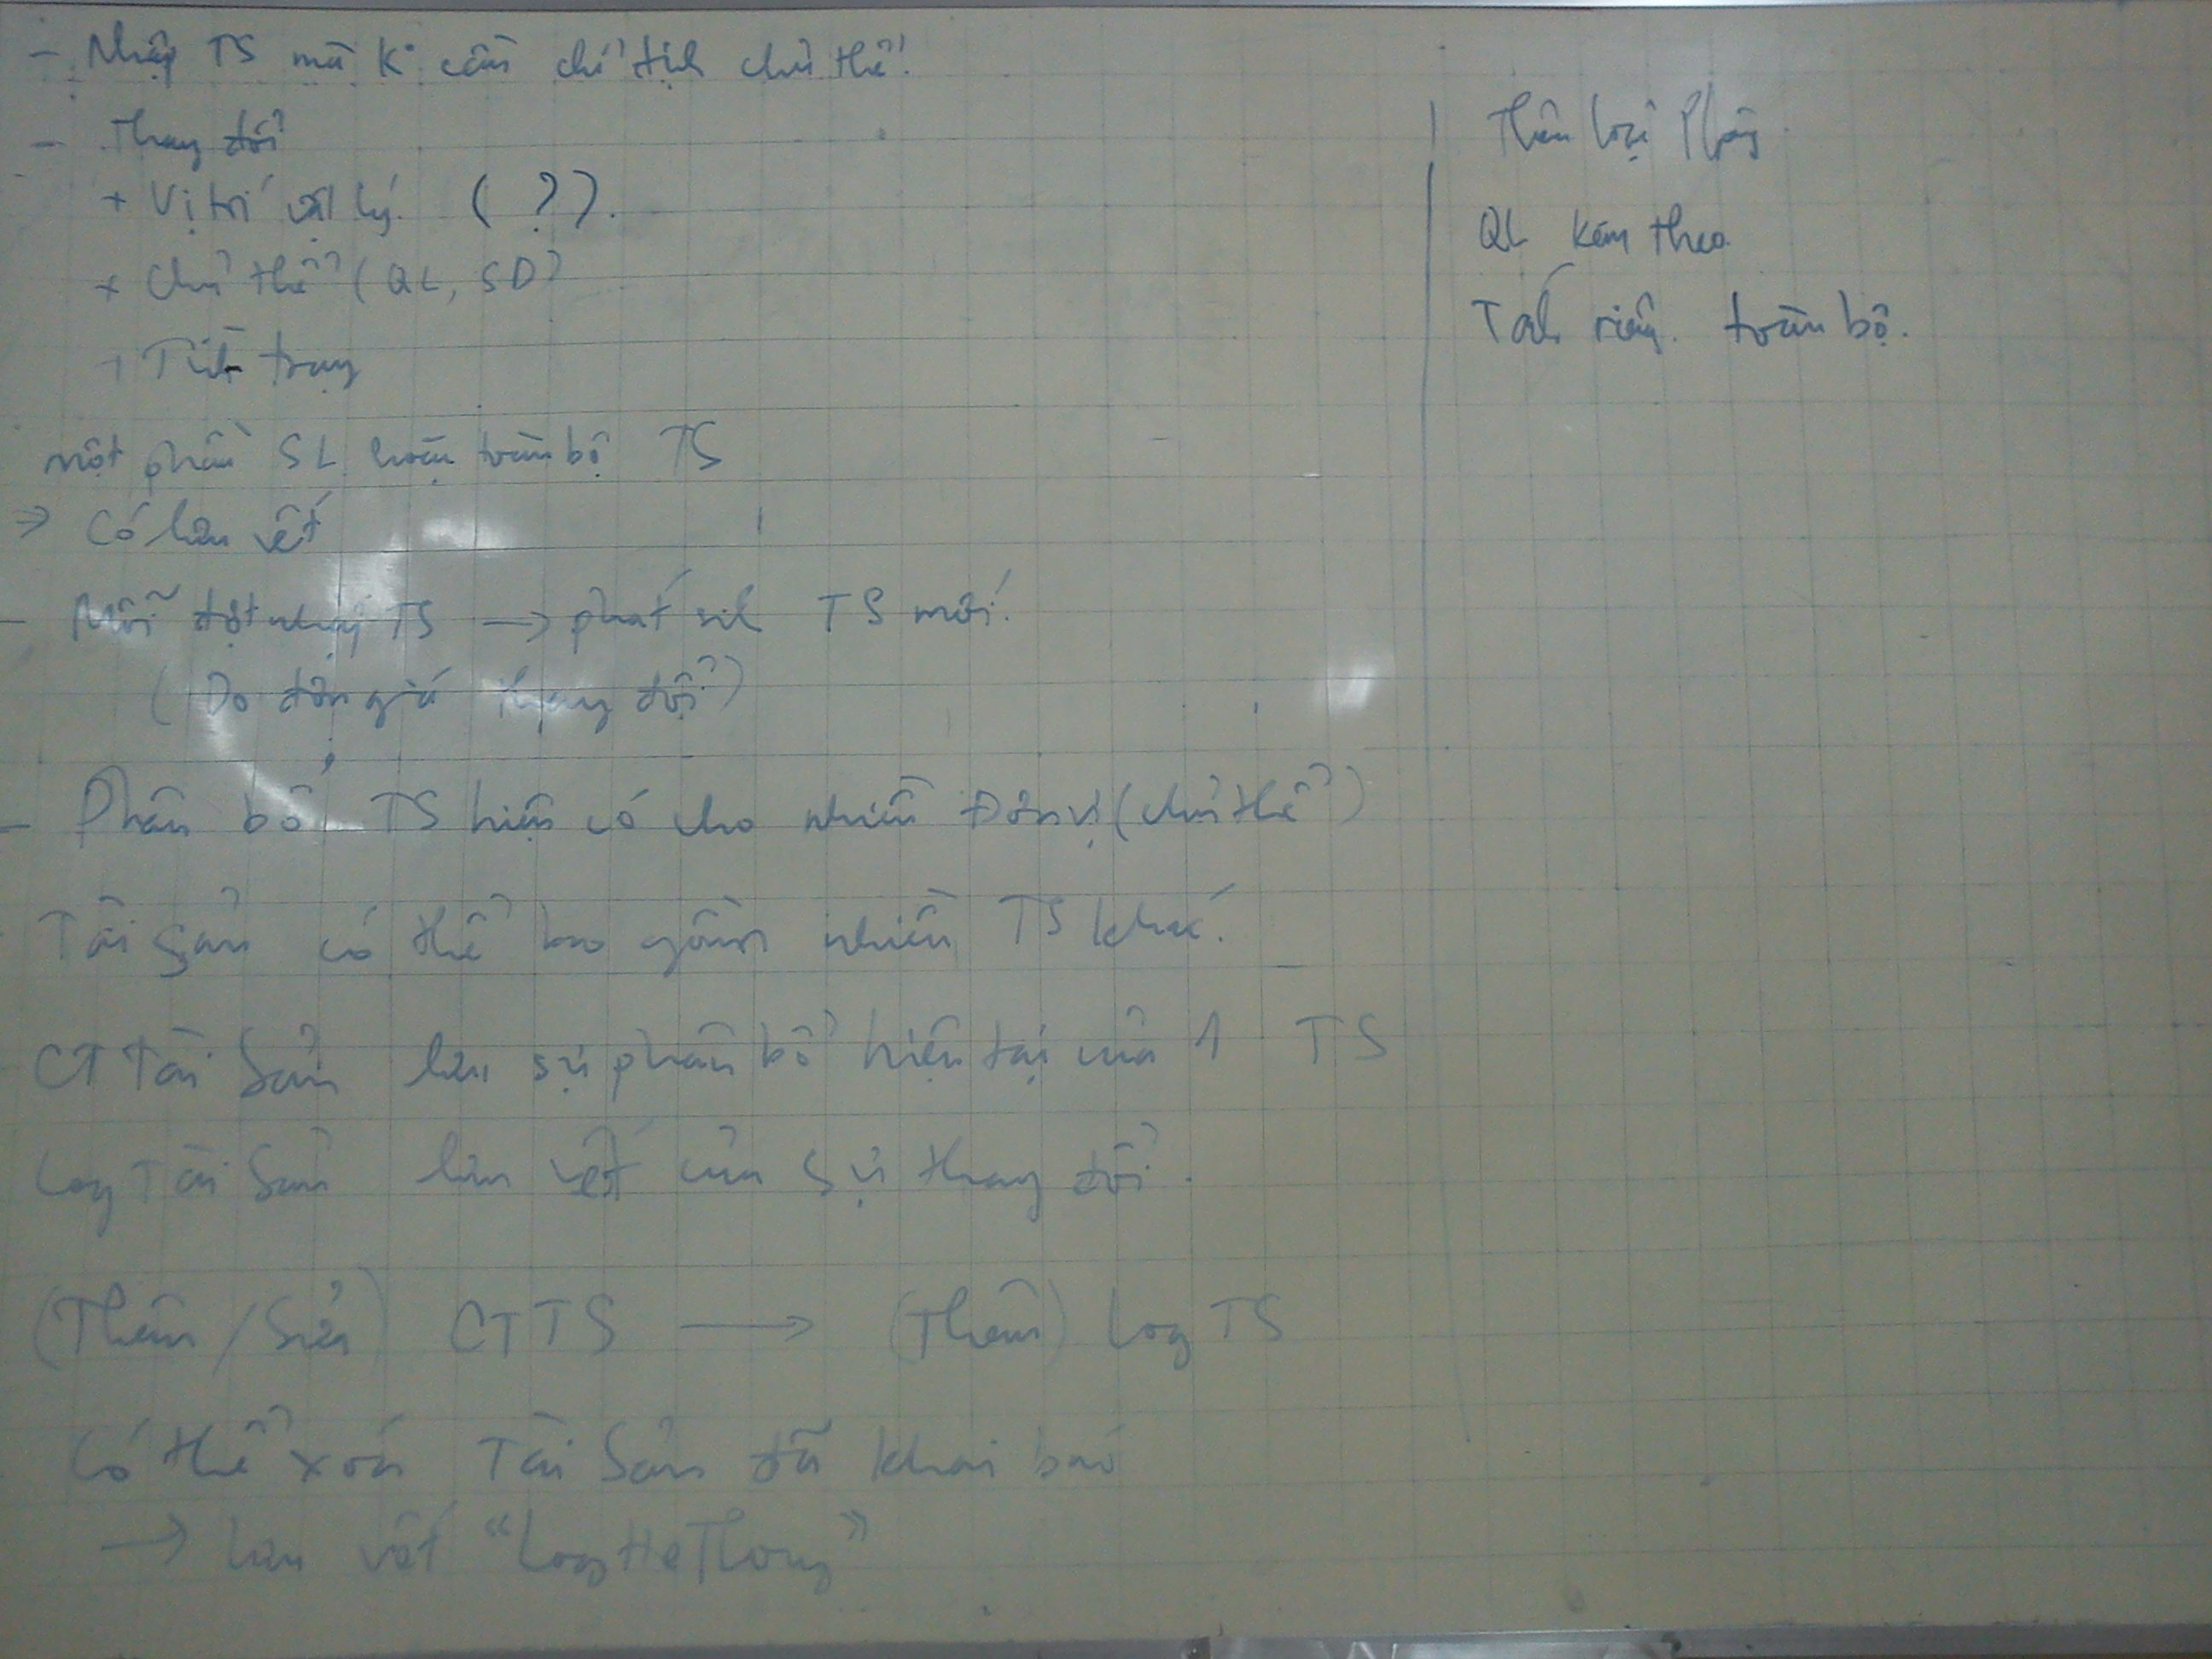 - Nhập TS mà K cần chỉ định chủ thể.
- Thay đổi
+ Vị trí vật lý. ( ? ).
+ Chủ thể (QL, SD)
+ Tình trạng
Một phần SL hoặc toàn bộ TS
⇒ Có lưu vết
- Mỗi đợt nhập TS → phát sinh TS mới.
(Do đơn giá thay đổi)
- Phân bổ TS hiện có cho nhiều Đơn vị (chủ thể)
Tài sản có thể bao gồm nhiều TS khác.
CT Tài Sản lưu sự phân bổ hiện tại của 1 TS
Log Tài Sản lưu vết của sự thay đổi.
(Thêm / Sửa) CTTS → (Thêm) Log TS
Có thể xóa Tài Sản đã khai báo
→ lưu vết "LogHeThong"
Thêm loại Phòng
QL kèm theo
Tách riêng. toàn bộ.